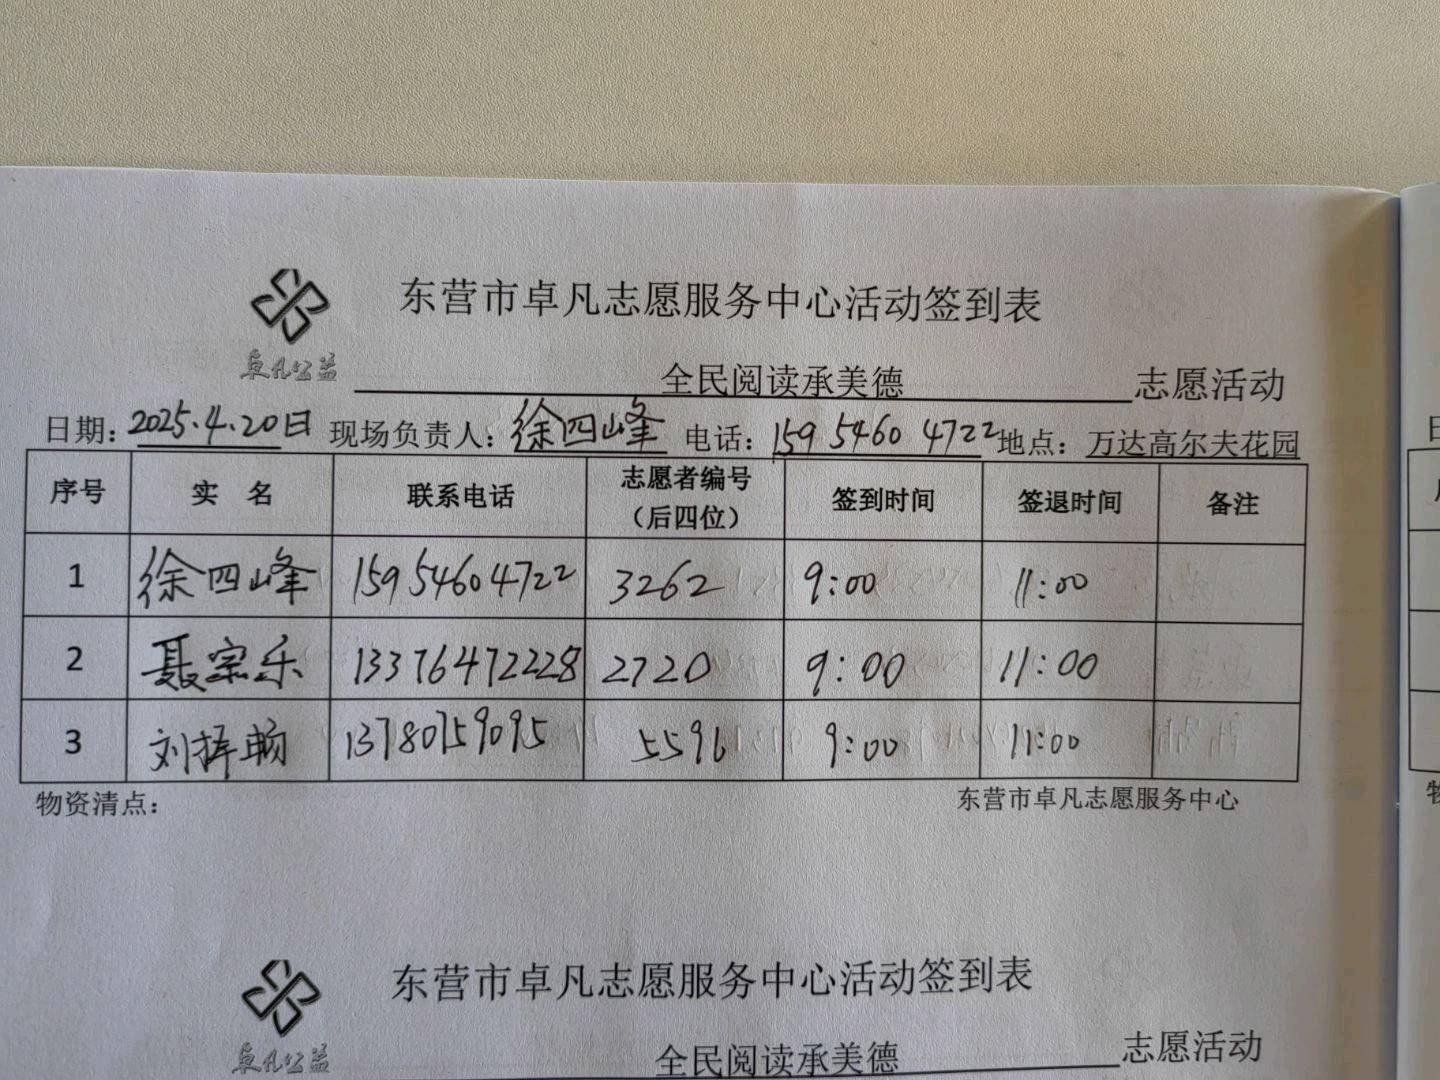 东营市卓凡志愿服务中心活动签到表
卓凡公益
全民阅读承美德 志愿活动
日期：2025.4.20日 现场负责人：徐四峰 电话：159 5460 4722 地点：万达高尔夫花园
序号 实 名 联系电话 志愿者编号（后四位） 签到时间 签退时间 备注
1 徐四峰 15954604722 3262 9:00 11:00
2 聂宗乐 13376472228 2720 9:00 11:00
3 刘 13780759095 5596 9:00 11:00
物资清点： 东营市卓凡志愿服务中心
东营市卓凡志愿服务中心活动签到表
卓凡公益
全民阅读承美德 志愿活动